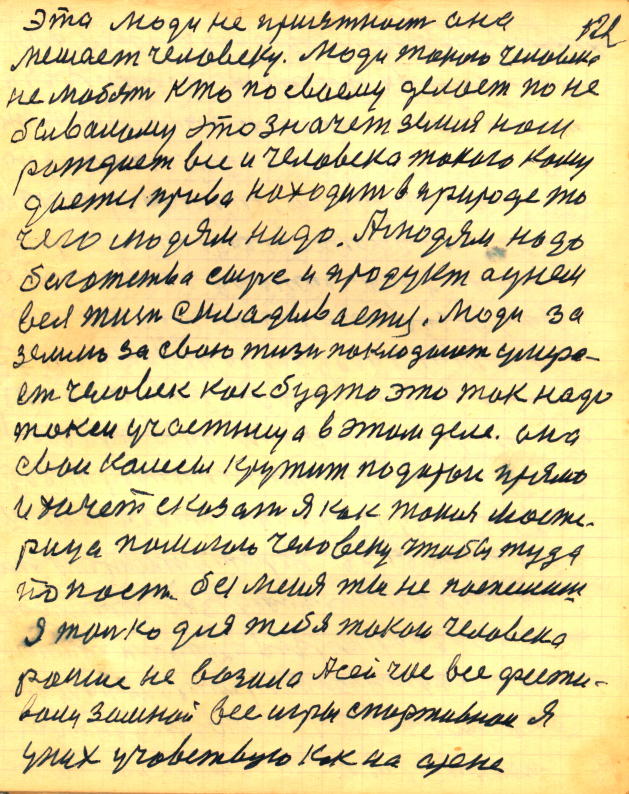 Эта люди не приятност она 122
мешает человеку. Люди такого человека
не любят кто по своему делает по не
бывалому это значет земля наш
рождает все и человека такого кому
дается права находит в природе то
чего людям надо. А людям надо
богатства сыре и продукт а у нем
вся жизн складывается. Люди за
землю за свою жизн покладают умирае-
ет человек как будто это так надо
такси участница в этом деле. она
свои колесы крутит по дороги прямо
и хочет сказат я как такая масте-
рица помогаю человеку чтобы туда
попаст. без меня ты не поспешиш
я толко для тебя такого человека
ранше не возила А сей час все фести-
вали за мной все игры спортивнаи Я
у них учавствую как на сцене